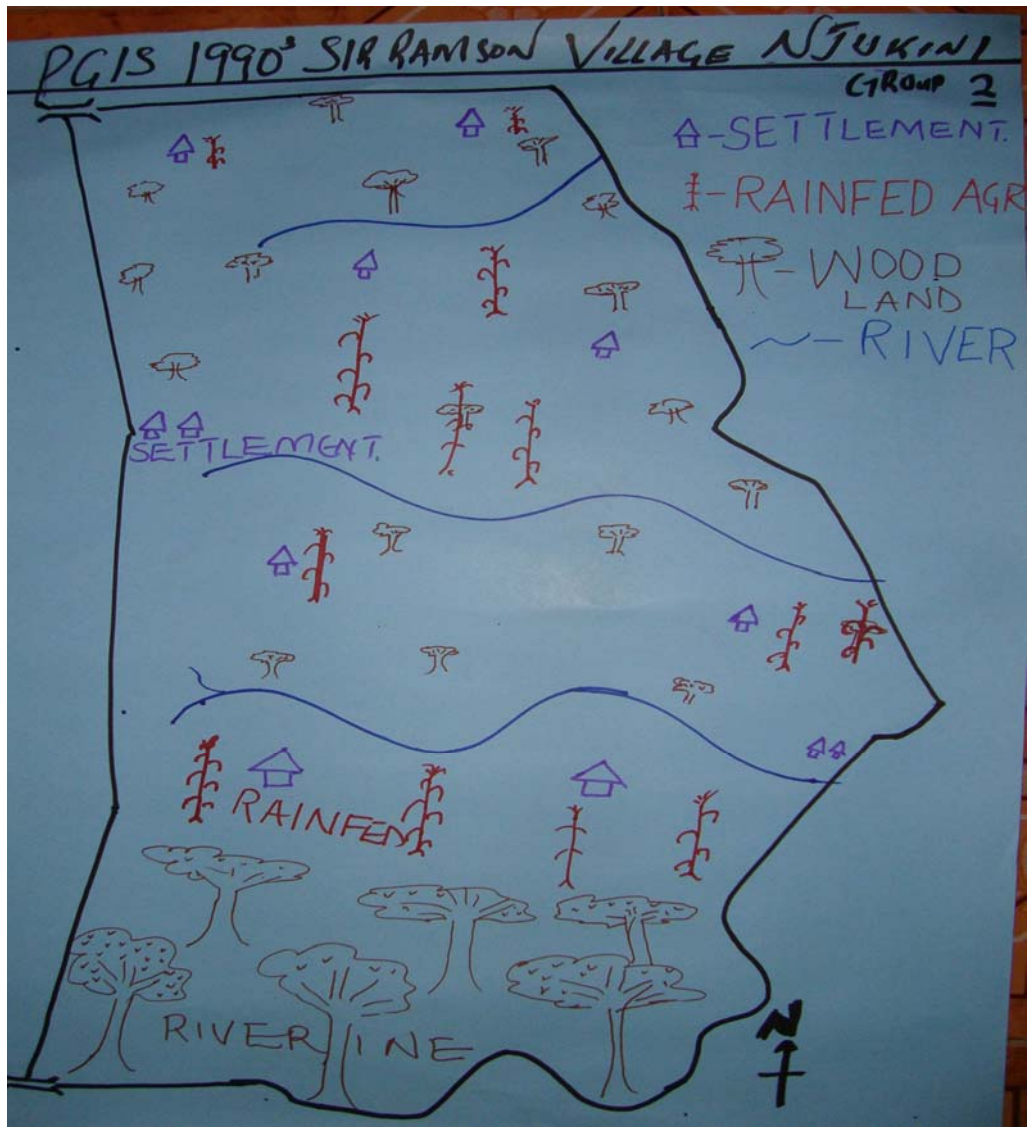 PGIS 1990s SIR RAMSON VILLAGE NJUKINI
GROUP 2
-SETTLEMENT.
-RAINFED AGR
-WOOD
LAND
-RIVER
SETTLEMENT.
RAINFED
RIVERINE
N